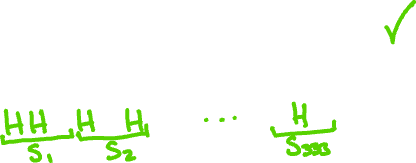 ✓
HH H H ... H
S₁ S₂ S₃₃₃